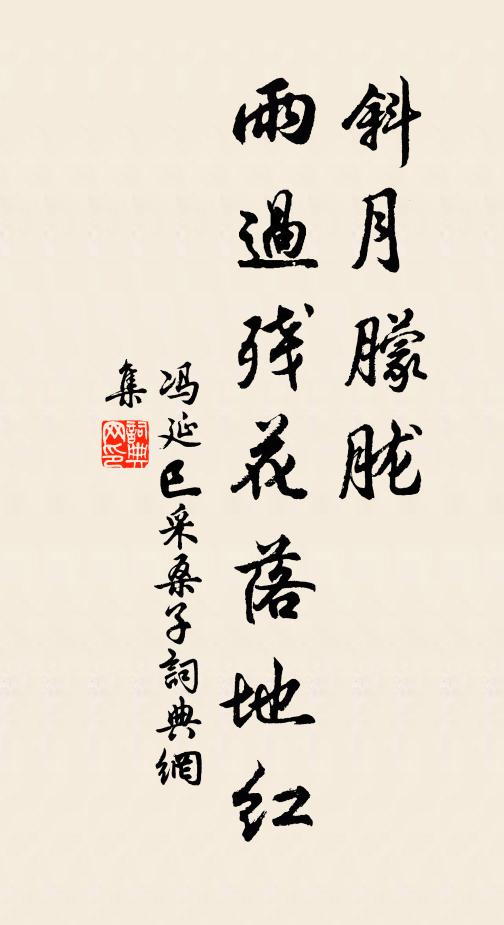 斜月朦胧
雨過残花落地红
冯延巳采桑子詞典網
集
詞典
网印